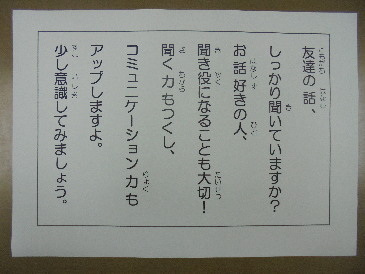 友達の話、
しっかり聞いていますか?
お話好きの人、
聞き役になることも大切!
聞く力もつくし、
コミュニケーション力も
アップしますよ。
少し意識してみましょう。